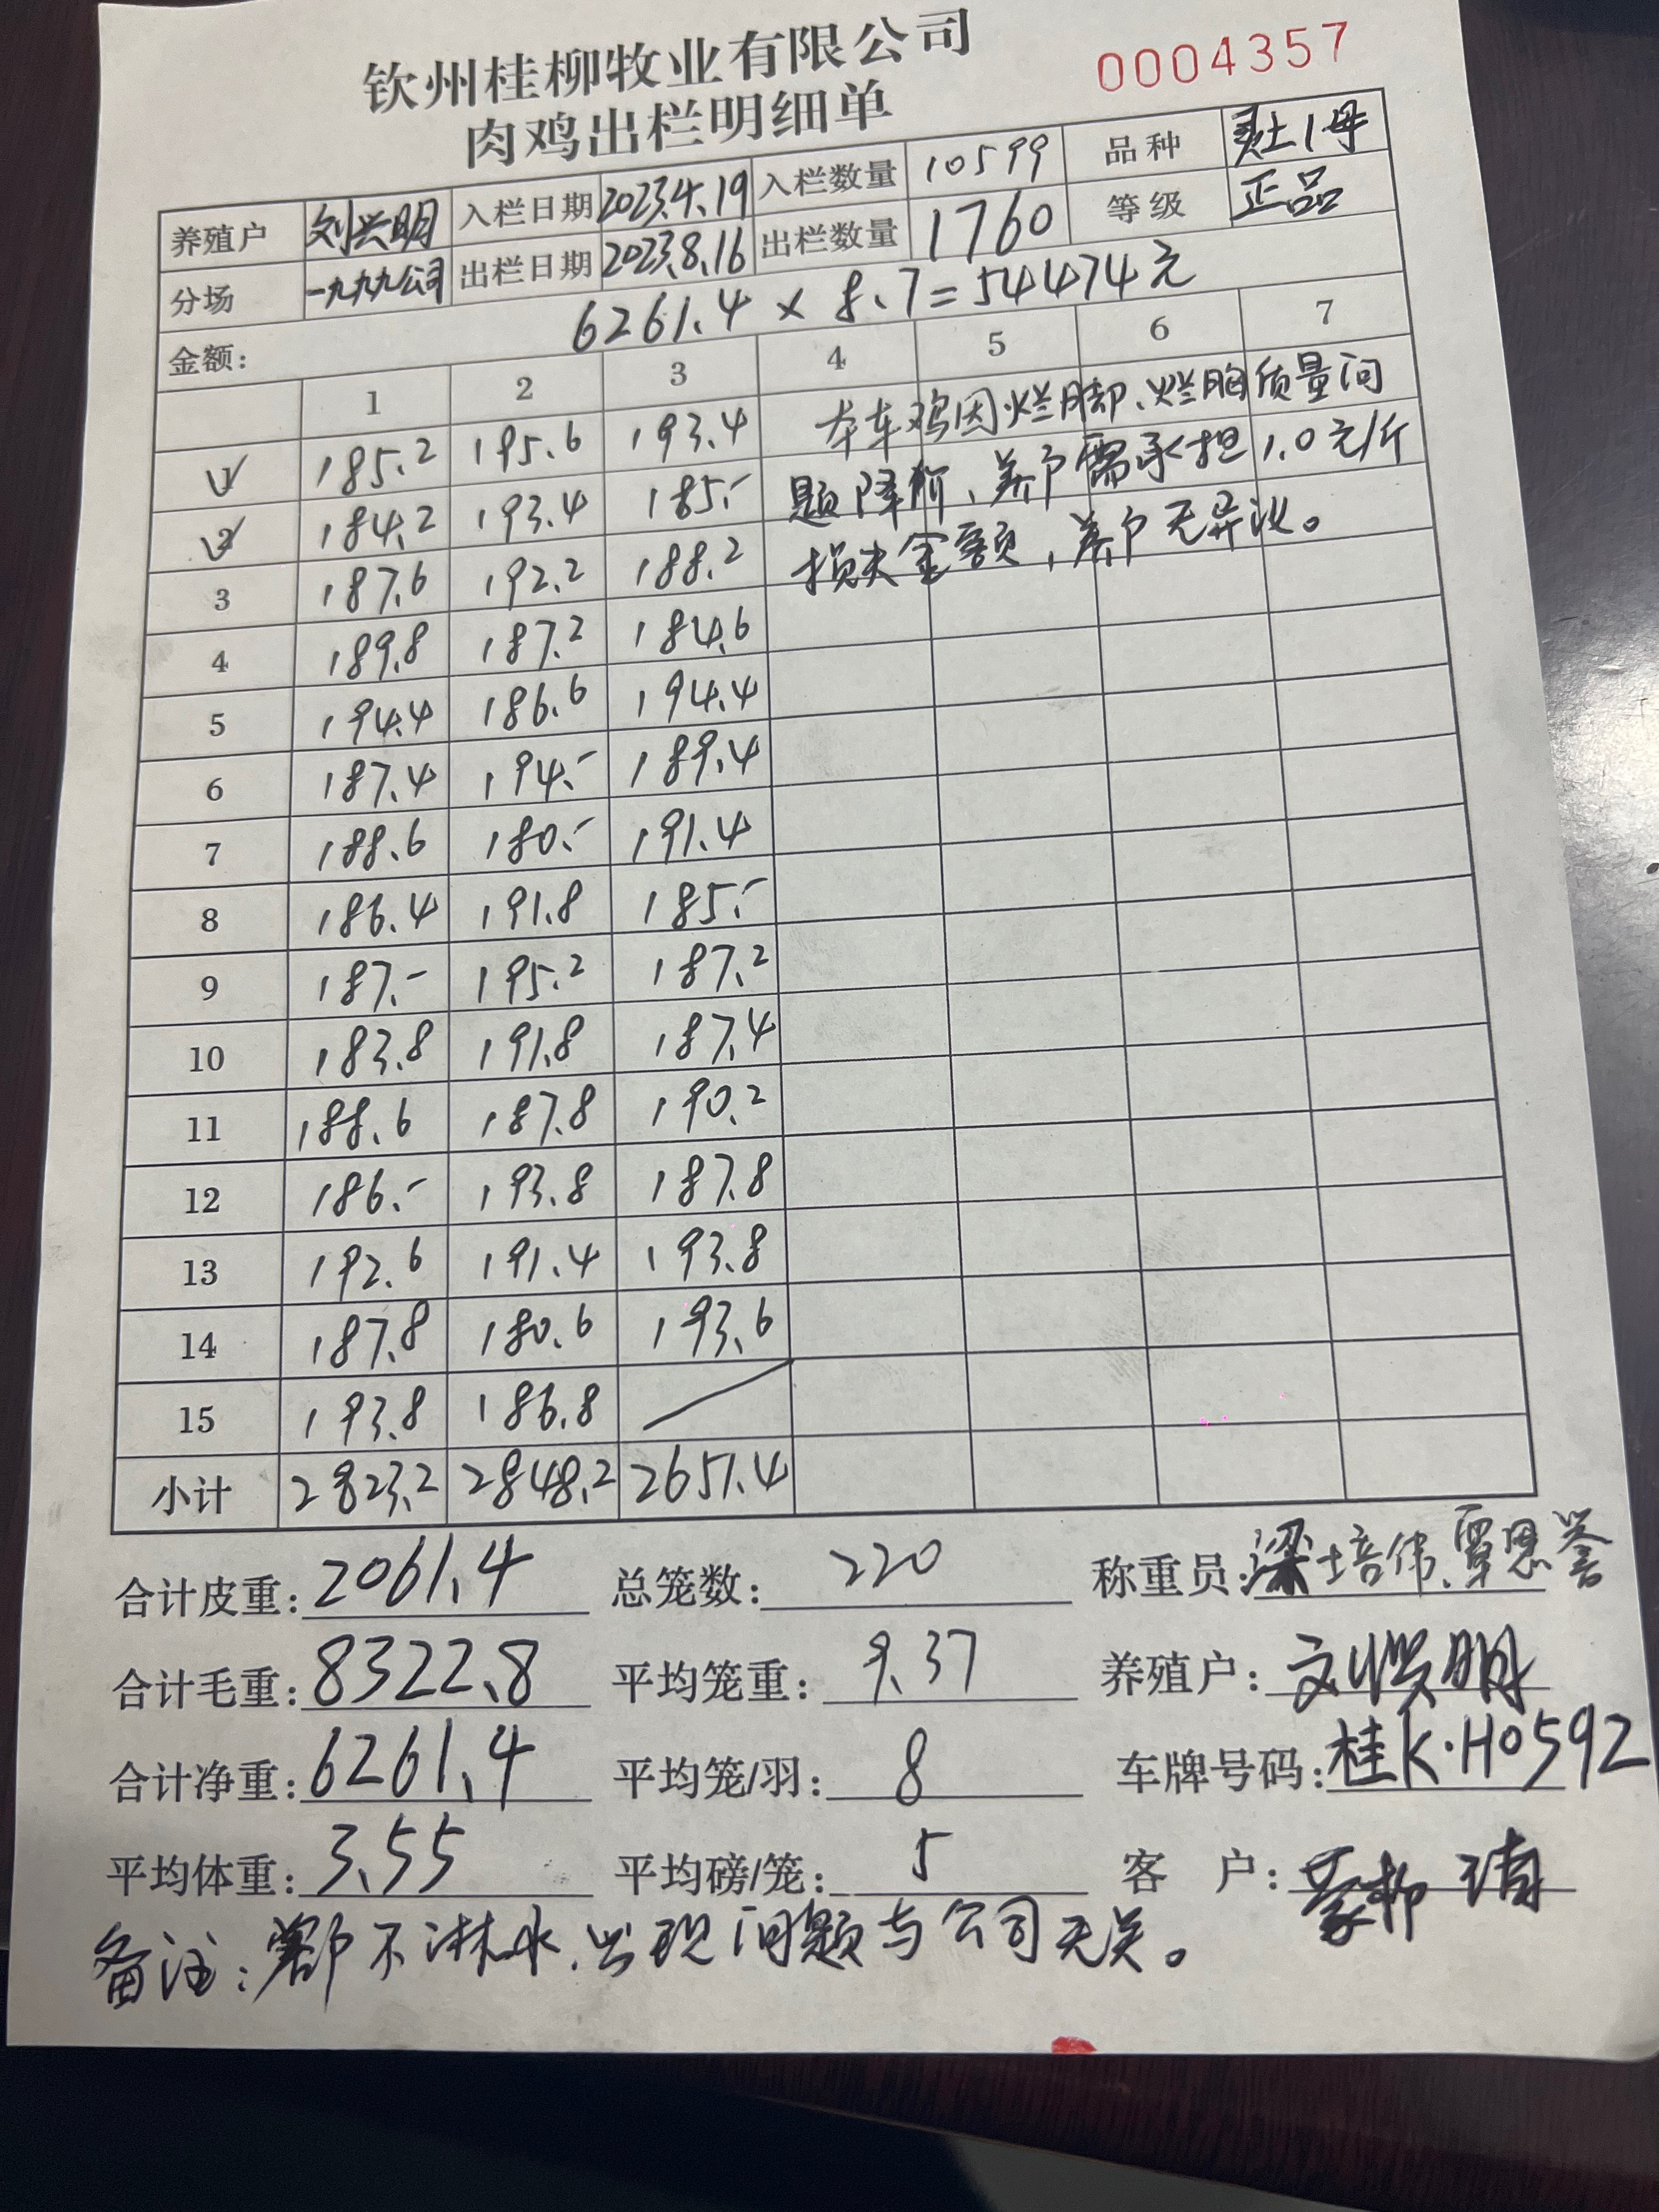 钦州桂柳牧业有限公司
0004357
肉鸡出栏明细单
养殖户 刘兴明 入栏日期 2023.4.19 入栏数量 10599 品种 土1母
分场 一九九公司 出栏日期 2023.8.16 出栏数量 1760 等级 正品
金额: 6261.4 × 8.7=54474元
1 2 3 4 5 6 7
1 185.2 195.6 193.4 本车鸡因烂脚、烂胸质量问
2 184.2 193.4 185.- 题降价、养户需承担1.0元/斤
3 187.6 192.2 188.2 损失金额,养户无异议。
4 189.8 187.2 184.6
5 194.4 186.6 194.4
6 187.4 194.- 189.4
7 188.6 180.- 191.4
8 186.4 191.8 185.-
9 187.- 195.2 187.2
10 183.8 191.8 187.4
11 188.6 187.8 190.2
12 186.- 193.8 187.8
13 192.6 191.4 193.8
14 187.8 180.6 193.6
15 193.8 186.8
小计 2823.2 2848.2 2651.4
合计皮重: 2061.4 总笼数: 220 称重员: 梁培伟、覃恩誉
合计毛重: 8322.8 平均笼重: 9.37 养殖户: 刘兴明
合计净重: 6261.4 平均笼/羽: 8 车牌号码: 桂K·H0592
平均体重: 3.55 平均磅/笼: 5 客 户:
备注: 客户不淋水、出现问题与公司无关。